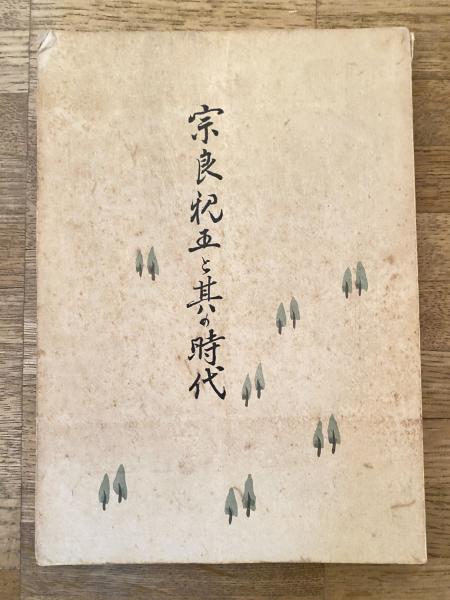 宗良親王と其の時代